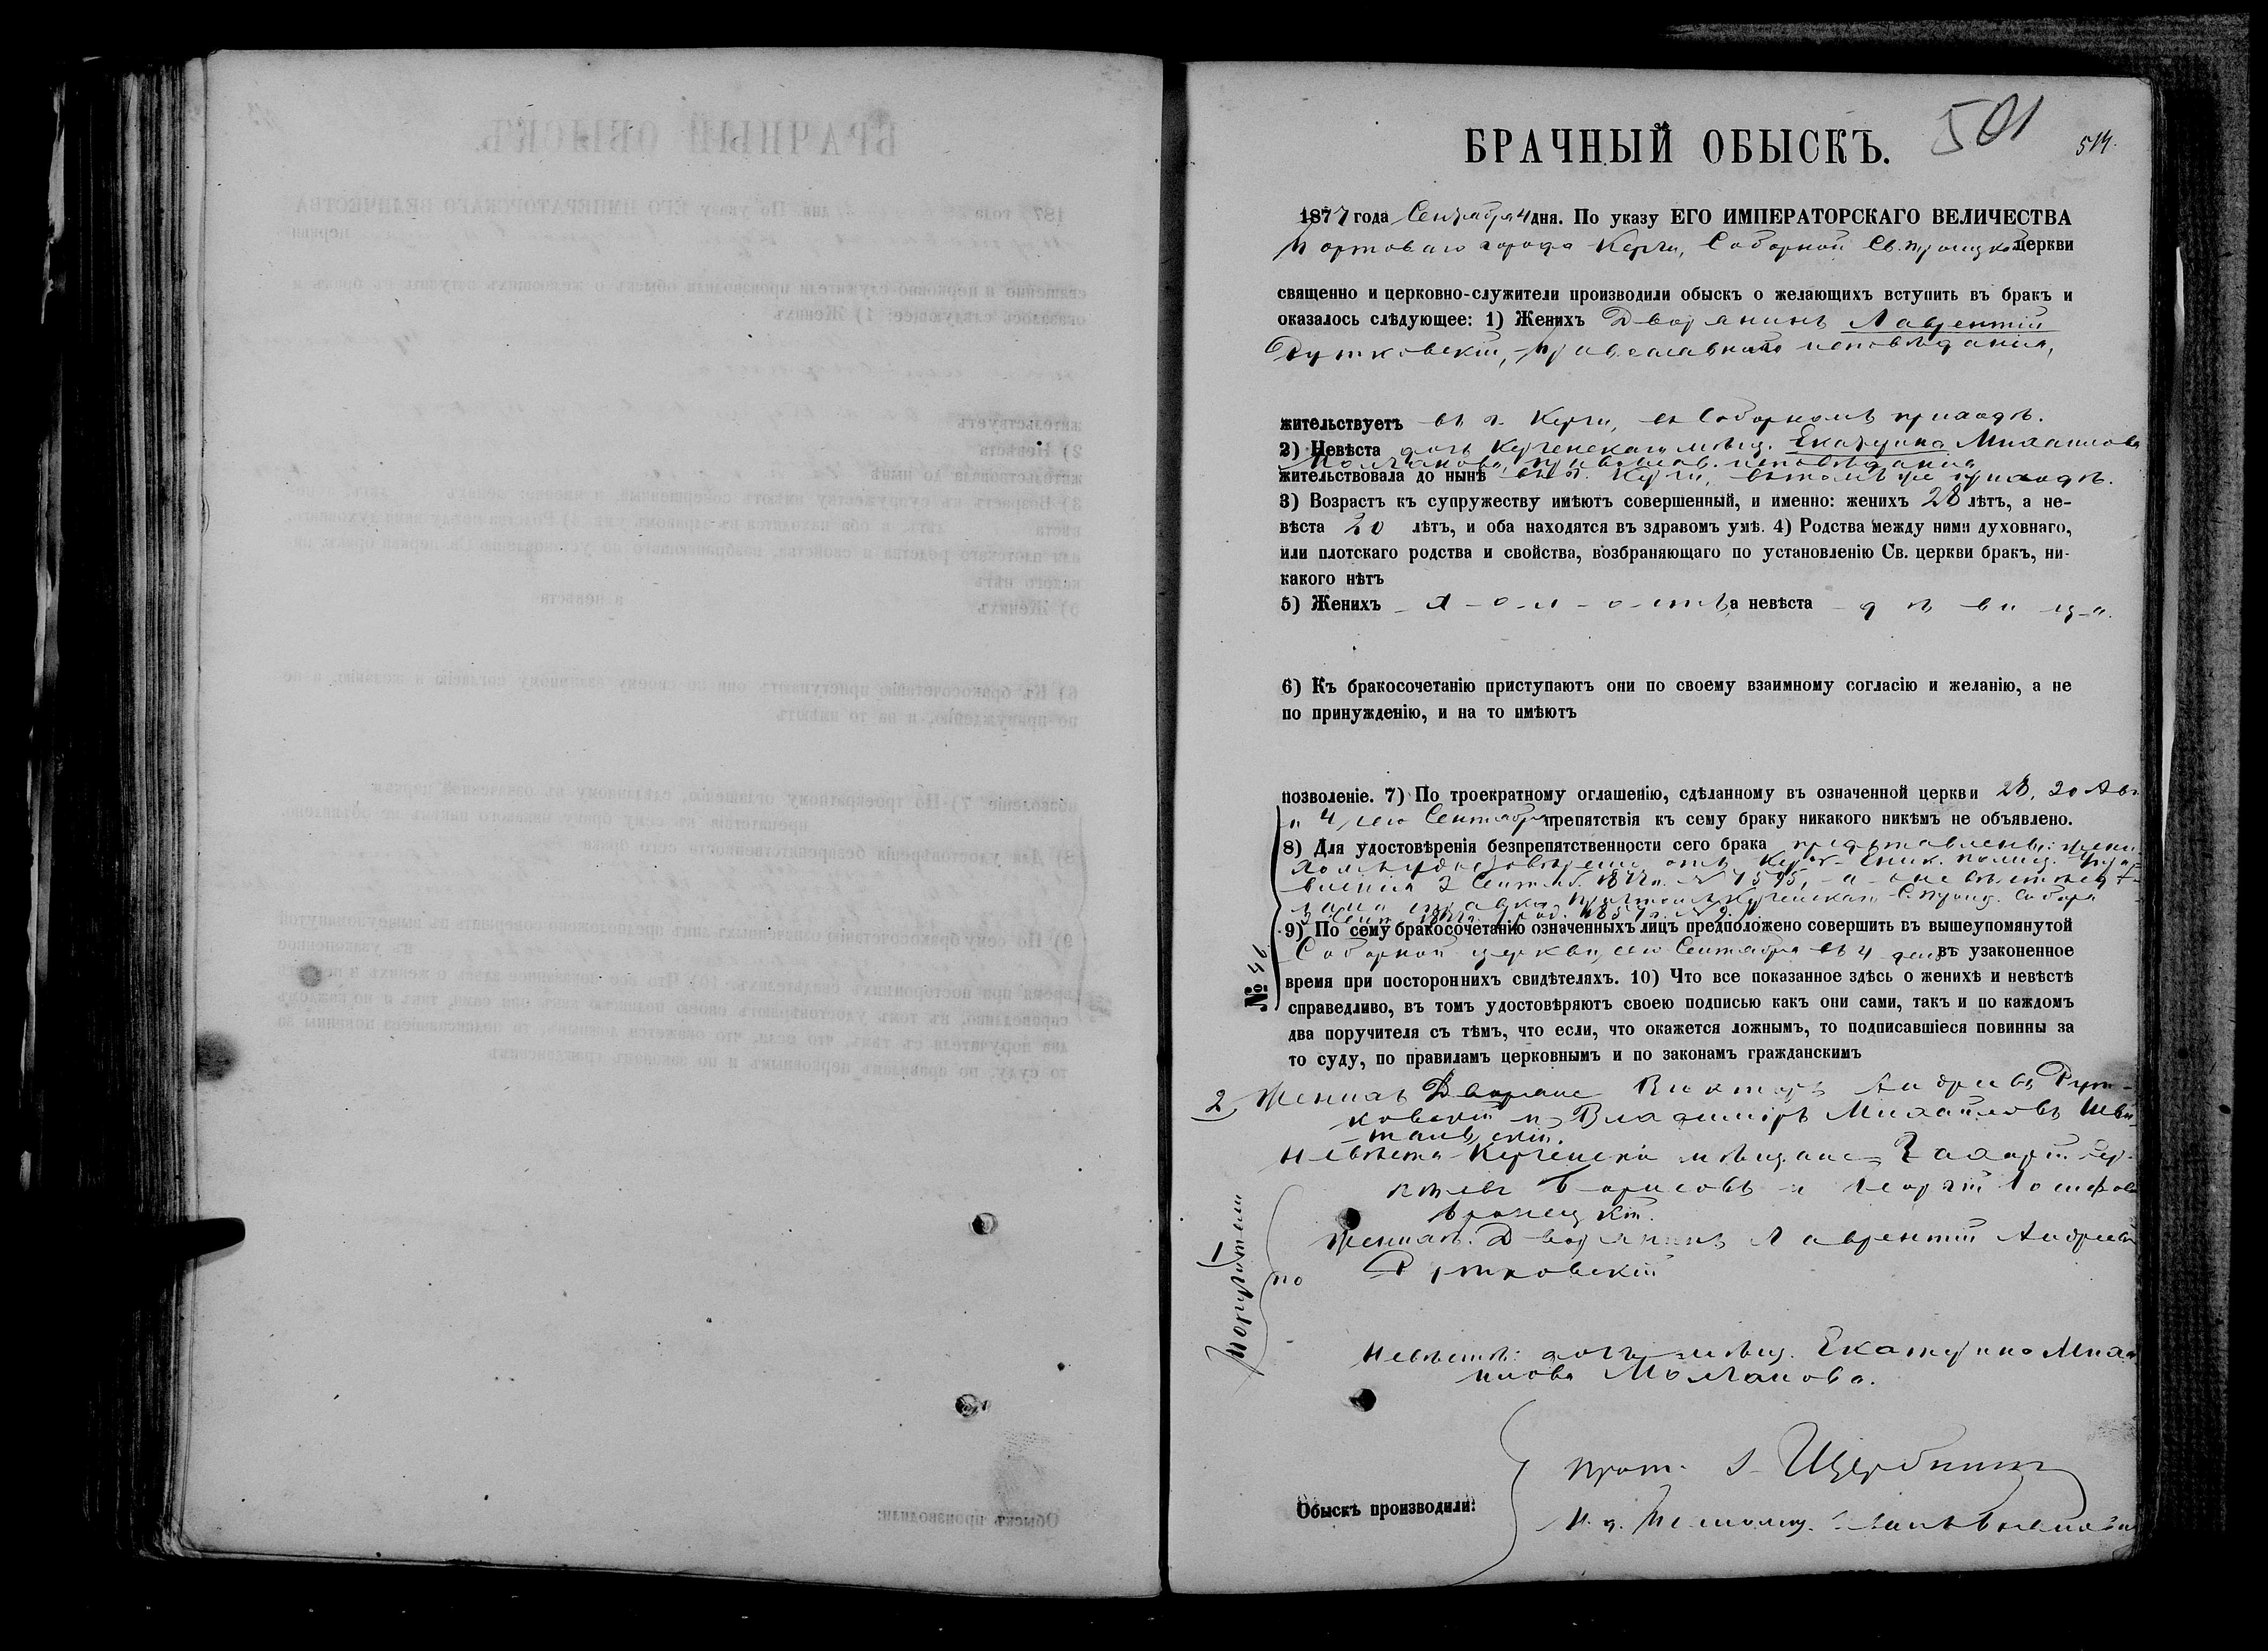 БРАЧНЫЙ ОБЫСКЪ.
501
514.
1877 года Сентября 4 дня. По указу ЕГО ИМПЕРАТОРСКАГО ВЕЛИЧЕСТВА
Портоваго города Керчи, Соборной Св. Троицкой церкви
священно и церковно-служители производили обыскъ о желающихъ вступить въ бракъ и
оказалось слѣдующее: 1) Женихъ Дворянинъ Лаврентій
Рутковскій, православнаго исповѣданія,
жительствуетъ въ г. Керчи, въ Соборномъ приходѣ.
2) Невѣста дочь Керченскаго мѣщ. Екатерина Михаилова
Молчанова, православ. исповѣданія
жительствовала до нынѣ въ г. Керчи, въ томъ же приходѣ.
3) Возрастъ къ супружеству имѣютъ совершенный, и именно: женихъ 28 лѣтъ, а не-
вѣста 20 лѣтъ, и оба находятся въ здравомъ умѣ. 4) Родства между ними духовнаго,
или плотскаго родства и свойства, возбраняющаго по установленію Св. церкви бракъ, ни-
какого нѣтъ
5) Женихъ холостъ, а невѣста дѣвица.
6) Къ бракосочетанію приступаютъ они по своему взаимному согласію и желанію, а не
по принужденію, и на то имѣютъ
позволеніе. 7) По троекратному оглашенію, сдѣланному въ означенной церкви 28, 30 Авг.
и 4 сего Сентября препятствія къ сему браку никакого никѣмъ не объявлено.
8) Для удостовѣренія безпрепятственности сего брака представлены: жени-
хомъ удостовѣреніе отъ Керч-Еник. полиц. Управ-
вленія 2 Сентяб. 1877 г. № 7595, а
справка Керченскаго Троиц. Собора
9) По сему бракосочетаніе означенныхъ лицъ предположено совершить въ вышеупомянутой
Соборной церкви, сего Сентября въ 4 день въ узаконенное
время при постороннихъ свидѣтеляхъ. 10) Что все показанное здѣсь о женихѣ и невѣстѣ
справедливо, въ томъ удостовѣряютъ своею подписью какъ они сами, такъ и по каждомъ
два поручителя съ тѣмъ, что если, что окажется ложнымъ, то подписавшіеся повинны за
то суду, по правиламъ церковнымъ и по законамъ гражданскимъ
№ 46.
2, Женихъ Дворяне Викторъ Андреевъ Рут-
ковскій и Владиміръ Михаиловъ
Невѣста Керченскіе мѣщане Захарій
Борисовъ и Георгій Іосифовъ
Женихъ. Дворянинъ Лаврентій Андреевъ
Рутковскій
1
Поручители
по
Невѣстѣ: дочь мѣщ. Екатерина Миха-
илова Молчанова.
Обыскъ производили:
Прот. І. Щербинин
И. д. Псаломщ.